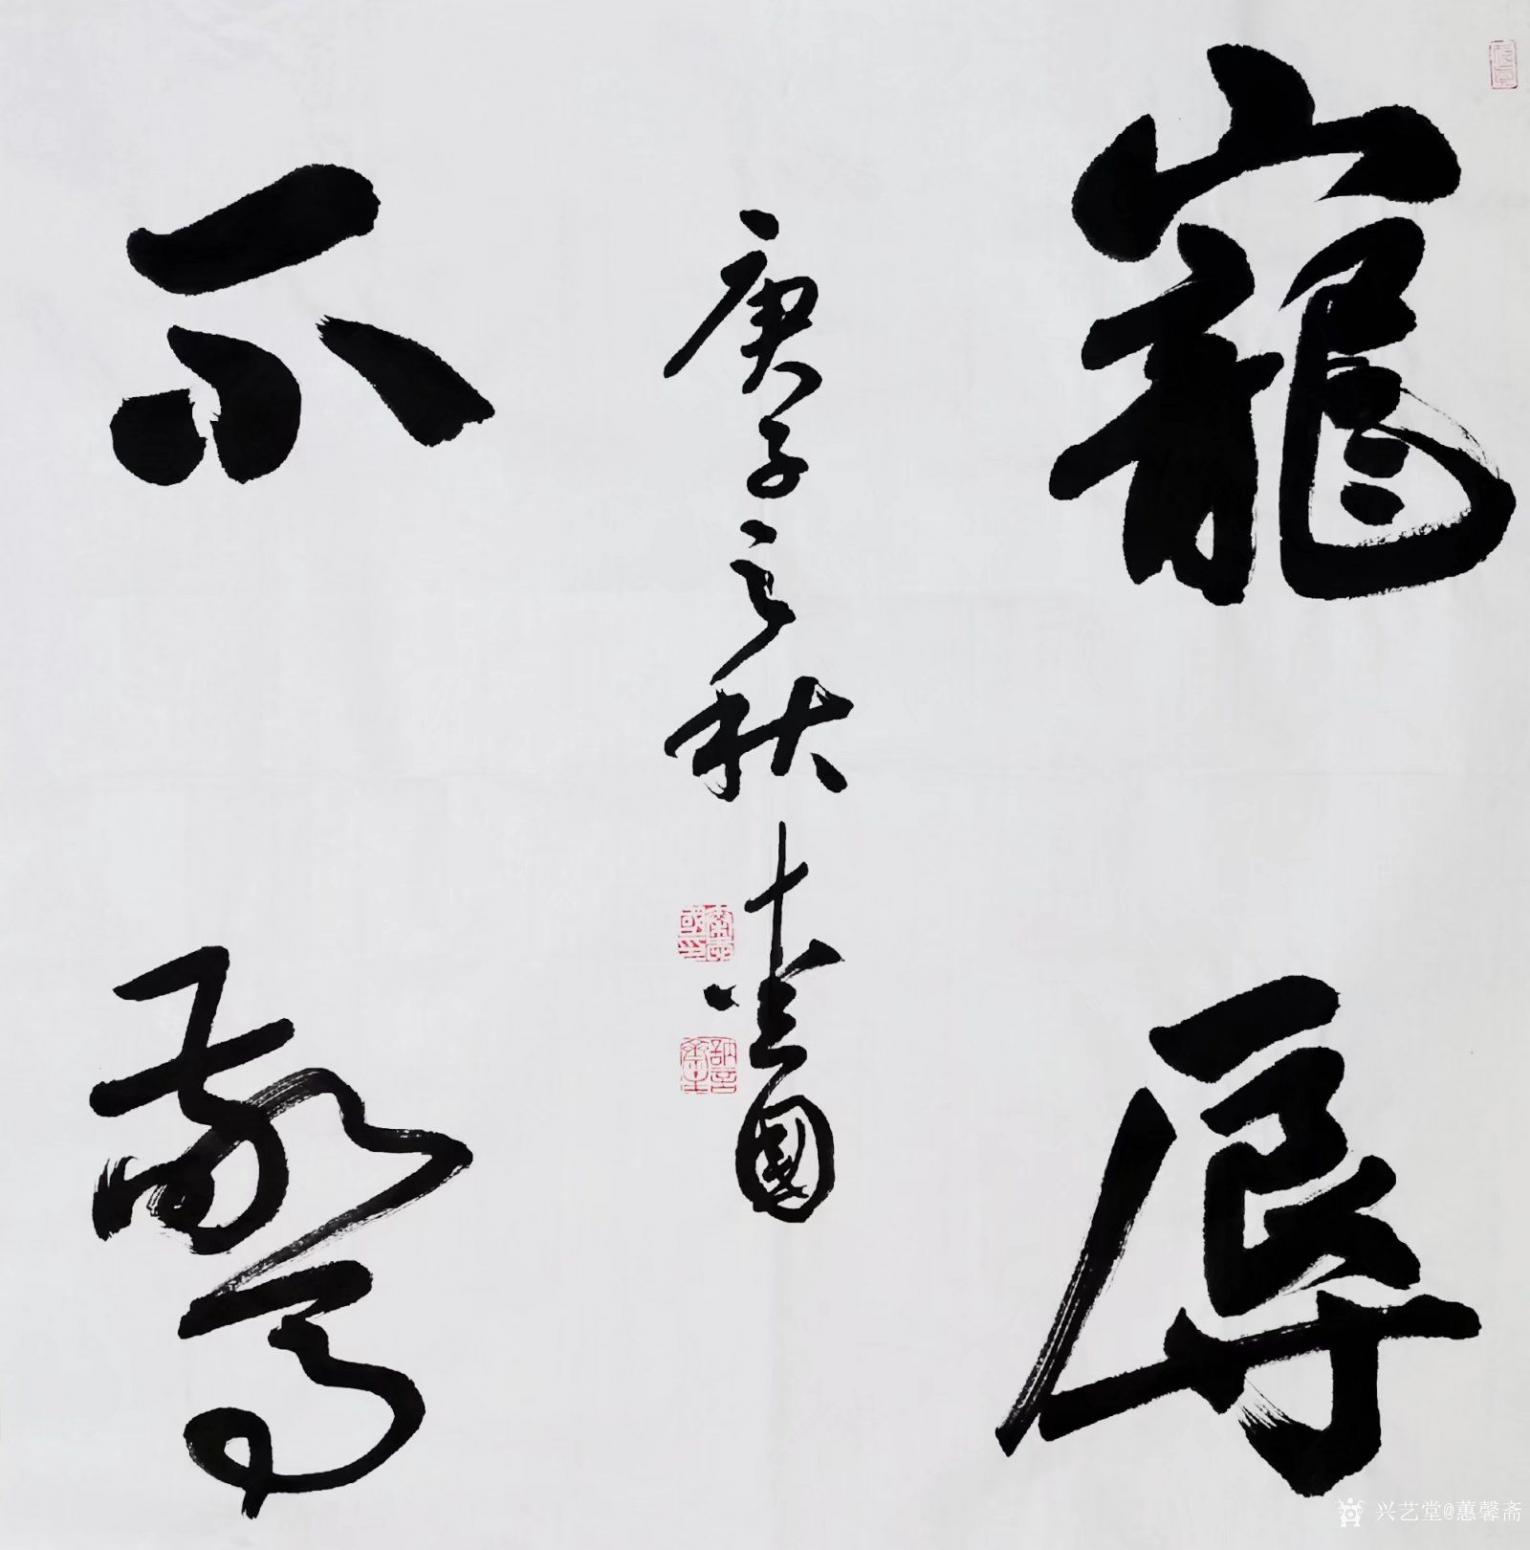 寵辱
庚子之秋
國
不驚
兴艺堂@蕙馨斋